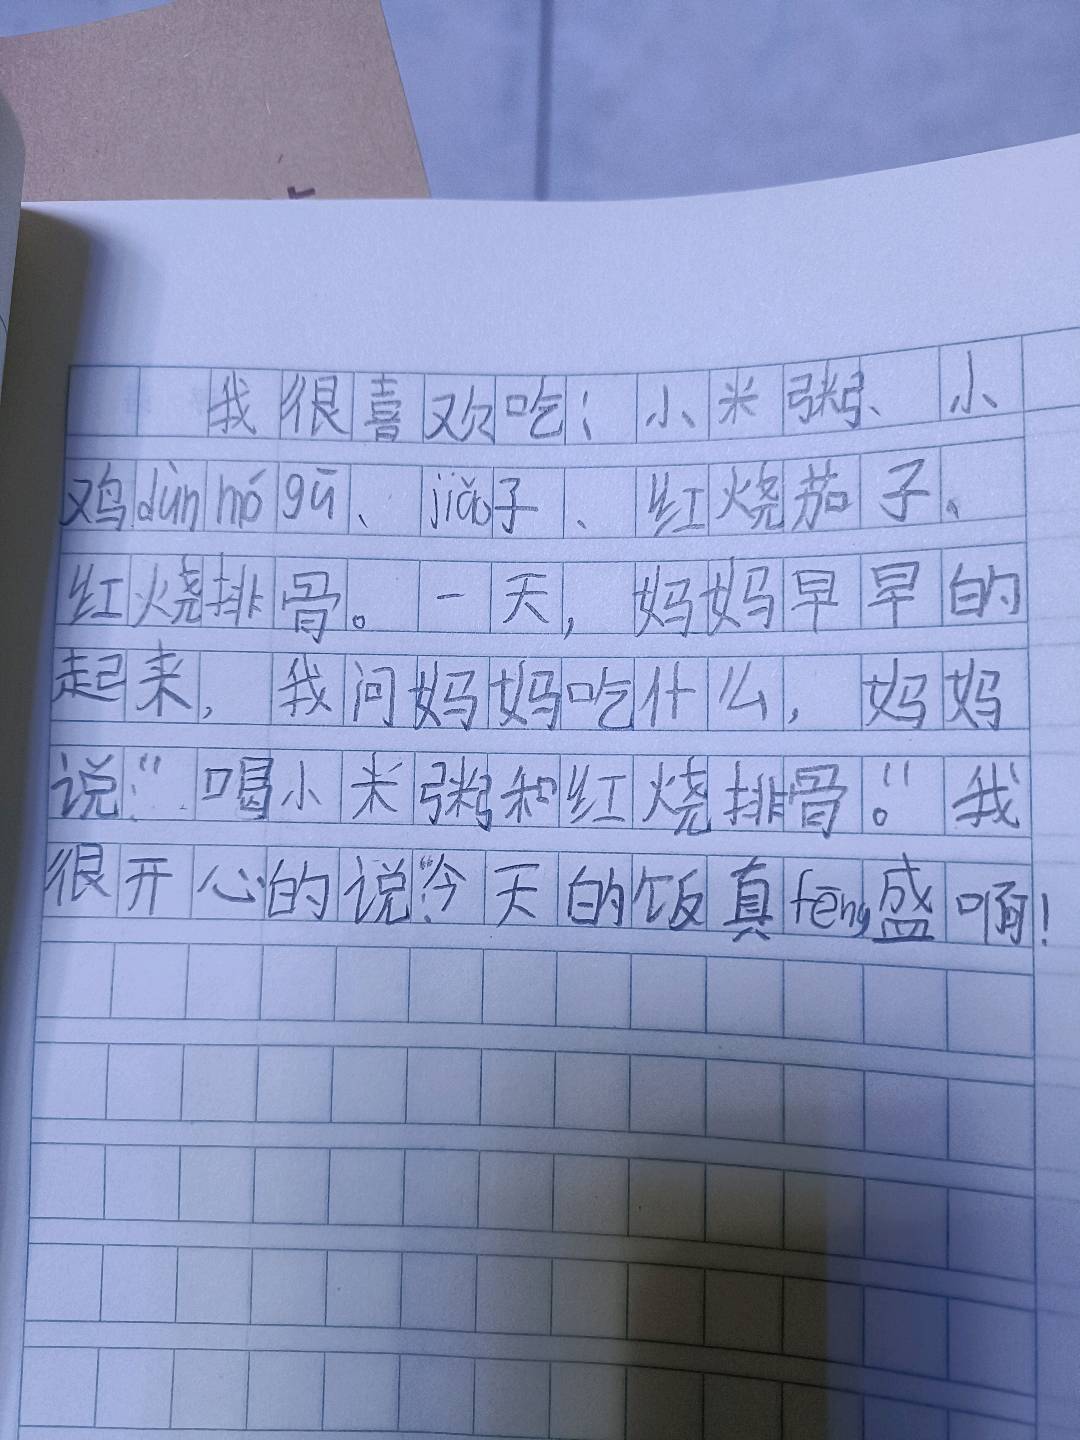 我很喜欢吃；小米粥、小
鸡dùn mó gū、jiǎo子、红烧茄子、
红烧排骨。一天，妈妈早早的
起来，我问妈妈吃什么，妈妈
说：“喝小米粥和红烧排骨。”我
很开心的说：“今天的饭真fēng盛啊！